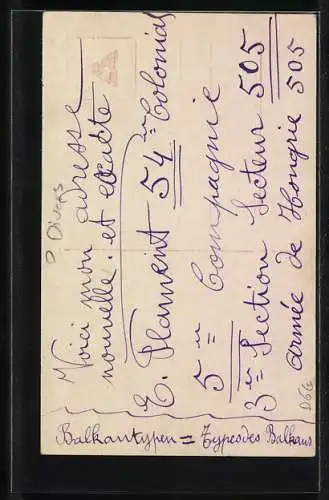 Voici mon adresse
nouvelle. et exacte
E. Flament 54 em Colonial
5 em Compagnie
3 em Section Secteur 505
armée de Hongrie 505
Balkantypen = Types des Balkans
Divers